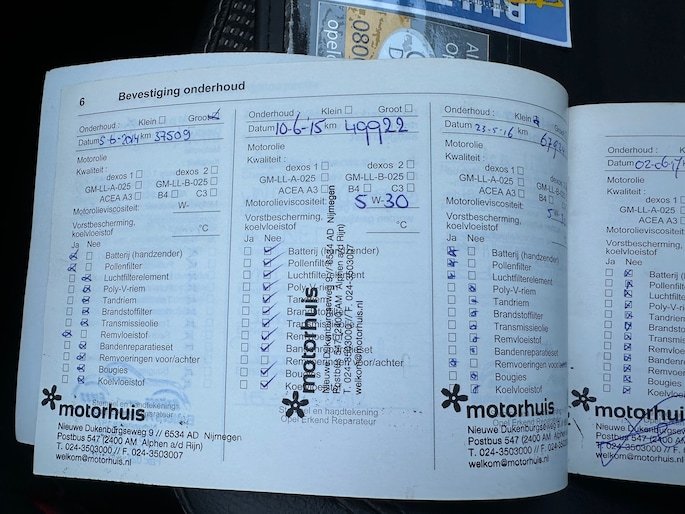 0800
6 Bevestiging onderhoud
Onderhoud : Klein Groot
Datum 5-6-2014 km 37509
Motorolie
Kwaliteit :
dexos 1 dexos 2
GM-LL-A-025 GM-LL-B-025
ACEA A3 B4 C3
Motorolieviscositeit: W-
Vorstbescherming
koelvloeistof °C
Ja Nee
Batterij (handzender)
Pollenfilter
Luchtfilterelement
Poly-V-riem
Tandriem
Brandstoffilter
Transmissieolie
Remvloeistof
Bandenreparatieset
Remvoeringen voor/achter
Bougies
Koelvloeistof
Stempel en handtekening
motorhuis
Nieuwe Dukenburgseweg 9 // 6534 AD Nijmegen
Postbus 547 (2400 AM Alphen a/d Rijn)
T. 024-3503000 // F. 024-3503007
welkom@motorhuis.nl
Onderhoud : Klein Groot
Datum 10-6-15 km 49922
Motorolie
Kwaliteit :
dexos 1 dexos 2
GM-LL-A-025 GM-LL-B-025
ACEA A3 B4 C3
Motorolieviscositeit: 5 W-30
Vorstbescherming
koelvloeistof °C
Ja Nee
Batterij (handzender)
Pollenfilter
Luchtfilterelement
Poly-V-riem
Tandriem
Brandstoffilter
Transmissieolie
Remvloeistof
Bandenreparatieset
Remvoeringen voor/achter
Bougies
Koelvloeistof
Stempel en handtekening
Opel Erkend Reparateur
motorhuis
Nieuwe Dukenburgseweg 9 // 6534 AD Nijmegen
Postbus 547 (2400 AM Alphen a/d Rijn)
T. 024-3503000 // F. 024-3503007
welkom@motorhuis.nl
Onderhoud : Klein Groot
Datum 23-5-16 km
Motorolie
Kwaliteit :
dexos 1 dexos 2
GM-LL-A-025 GM-LL-B-025
ACEA A3 B4 C3
Motorolieviscositeit:
Vorstbescherming
koelvloeistof
Ja Nee
Batterij (handzender)
Pollenfilter
Luchtfilterelement
Poly-V-riem
Tandriem
Brandstoffilter
Transmissieolie
Remvloeistof
Bandenreparatieset
Remvoeringen voor/achter
Bougies
Koelvloeistof
motorhuis
Nieuwe Dukenburgseweg 9
Postbus 547 (2400 AM Alphen
T. 024-3503000 // F. 024-
welkom@motorhuis.nl
Onderhoud : K
Datum
Motorolie
Kwaliteit :
GM-LL-A-025
ACEA A3
Motorolieviscositeit
Vorstbescherming
koelvloeistof
Ja Nee
Batterij
Pollenfilter
Luchtfilter
Poly-V-ri
Tandriem
Brandsto
Transmis
Remvloe
Bandenr
Remvoe
Bougies
Koelvloe
motorhui
Nieuwe Dukenburgsew
Postbus 547 (2400
T. 024-3503000
welkom@motorhuis.nl